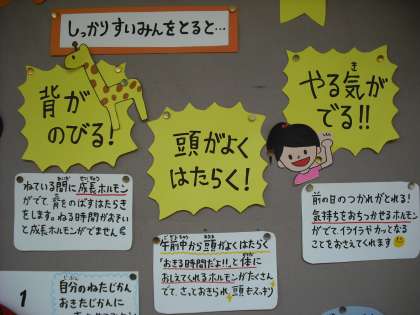 しっかりすいみんをとると…
背が
のびる!
頭がよく
はたらく!
やる気が
でる!!
ねている間に成長ホルモン
がでて、背をのばすはたらき
をします。ねる時間がおそい
と成長ホルモンがでません
午前中から頭がよくはたらく
「おきる時間だよ!!」と体に
おしえてくれるホルモンがたくさん
でて、さっとおきられ、頭もスッキリ
前の日のつかれがとれる!
気持ちをおちつかせるホルモン
がでて、イライラやカッとなる
ことをおさえてくれます
1
自分のねたじかん
おきたじかんに